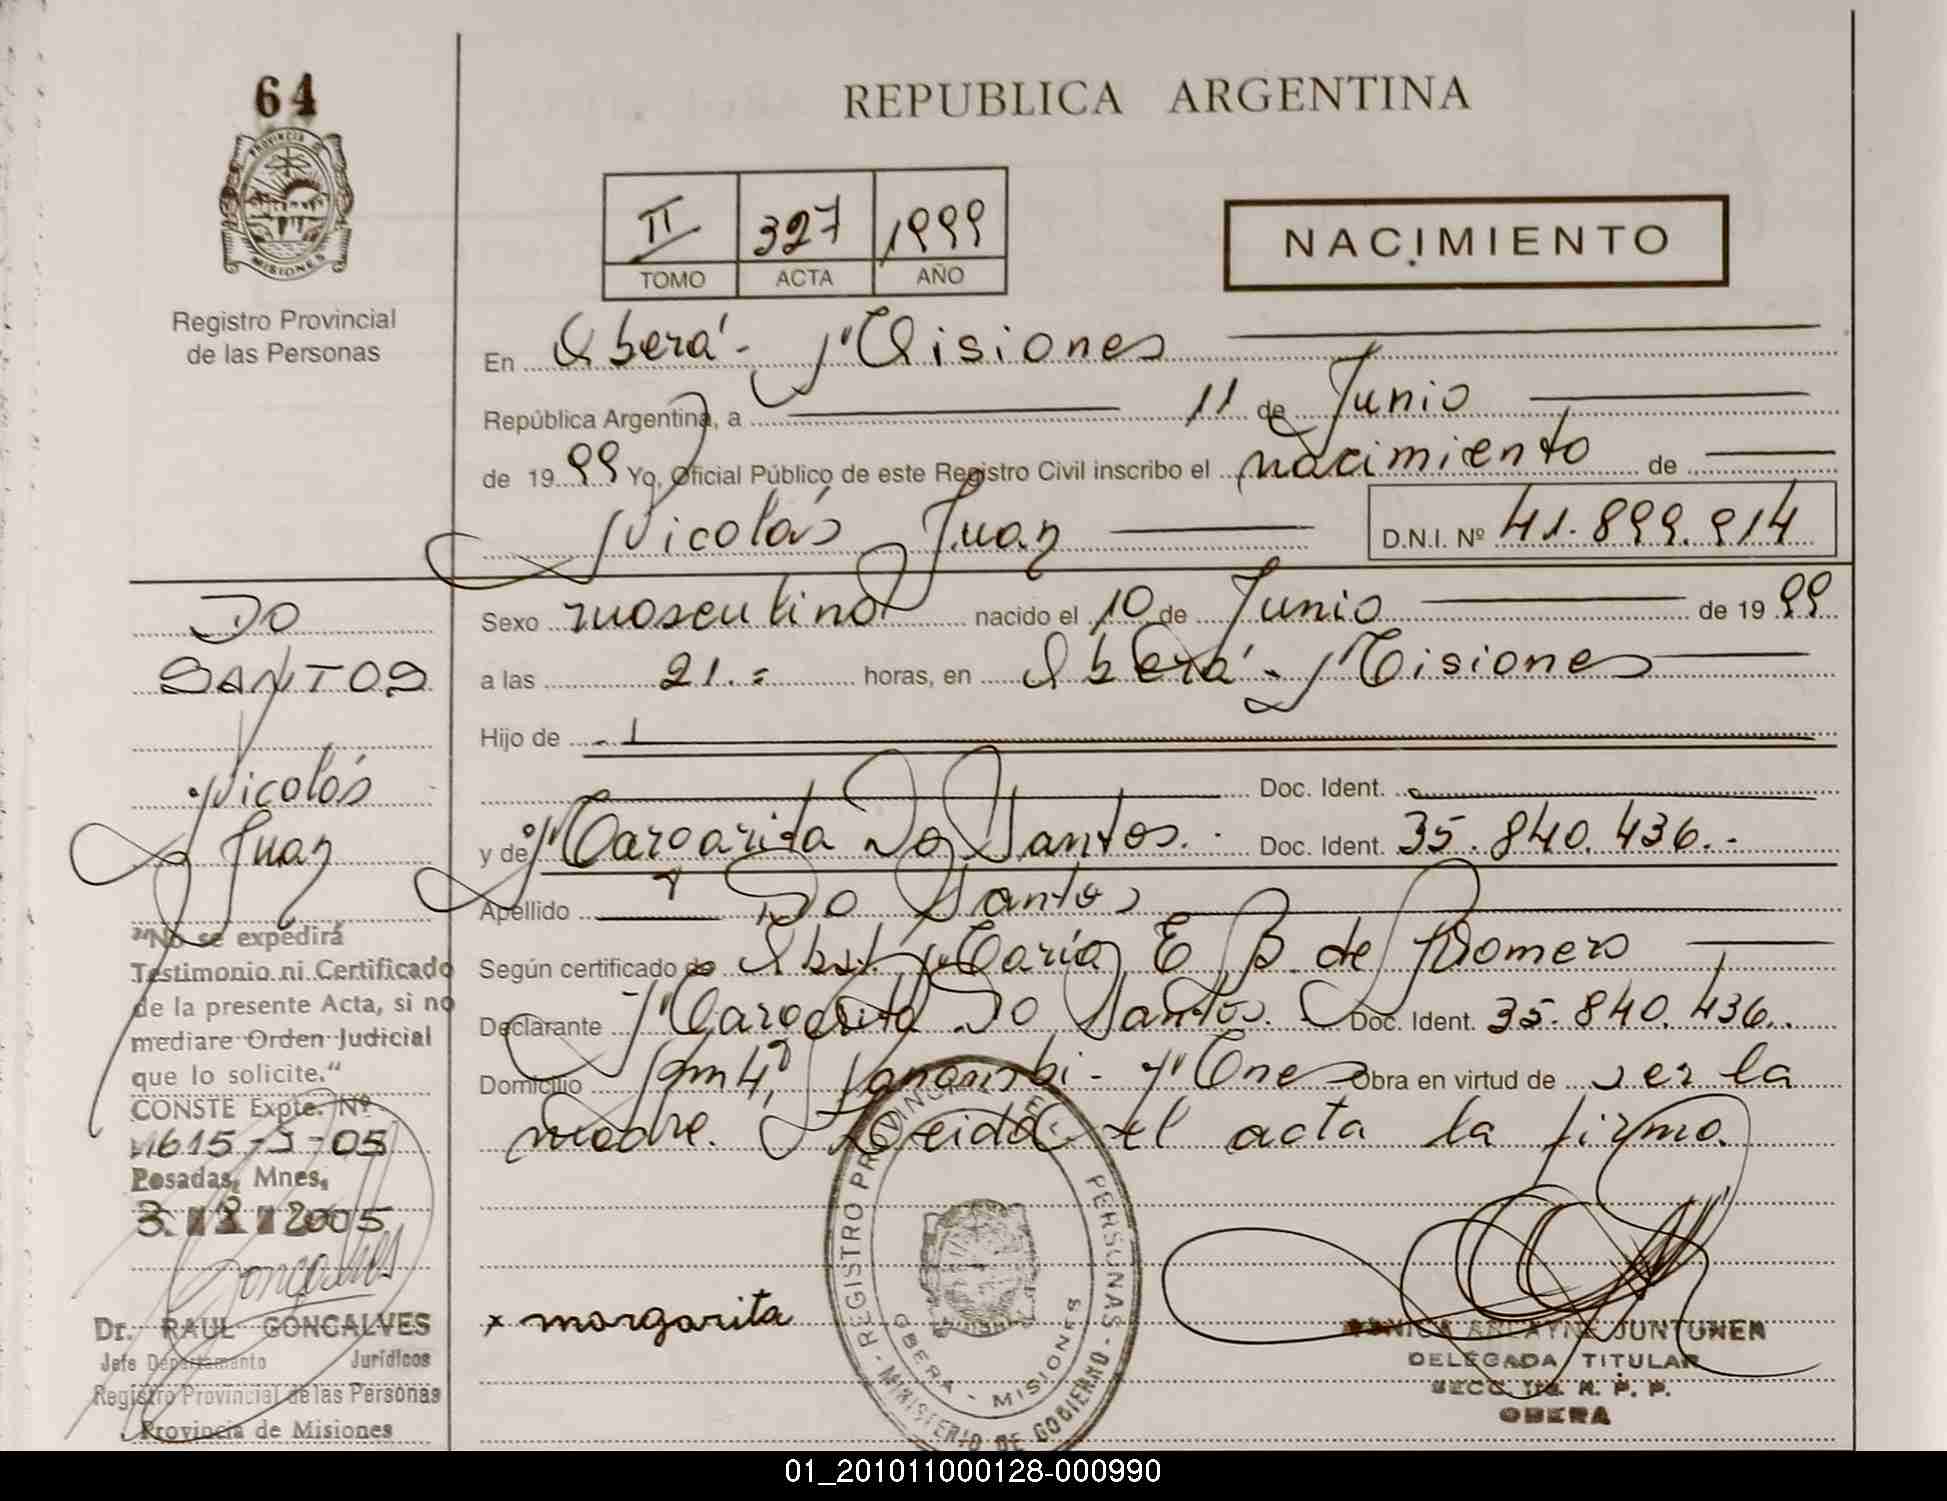 64
PROVINCIA DE
MISIONES
Registro Provincial
de las Personas
REPUBLICA ARGENTINA
II 327 1999
TOMO ACTA AÑO
NACIMIENTO
En Oberá - Misiones
República Argentina, a 11 de Junio
de 1999 Yo, Oficial Público de este Registro Civil inscribo el nacimiento de
Nicolás Juan D.N.I. Nº 41.899.914
DO
SANTOS
Nicolás
Juan
Sexo masculino nacido el 10 de Junio de 1999
a las 21.= horas, en Oberá - Misiones
Hijo de
Doc. Ident.
y de Margarita Do Santos. Doc. Ident. 35.840.436.-
Apellido Do Santos
Según certificado de Obst. María E. B. de Romero
Declarante Margarita Do Santos. Doc. Ident. 35.840.436.
Domicilio Km 4, - Mnes Obra en virtud de ser la
madre. Leida el acta la firma.
"No se expedirá
Testimonio ni Certificado
de la presente Acta, si no
mediare Orden Judicial
que lo solicite."
CONSTE Expte. Nº
1615-J-05
Posadas, Mnes,
3. 2005
Goncalves
Dr. RAUL GONCALVES
Jefe Departamento Jurídicos
Registro Provincial de las Personas
Provincia de Misiones
x margarita
REGISTRO PROVINCIAL DE PERSONAS - MINISTERIO DE GOBIERNO
OBERA - MISIONES
MONICA JUNTUNEN
DELEGADA TITULAR
SECC. R. P. P.
OBERA
01_201011000128-000990